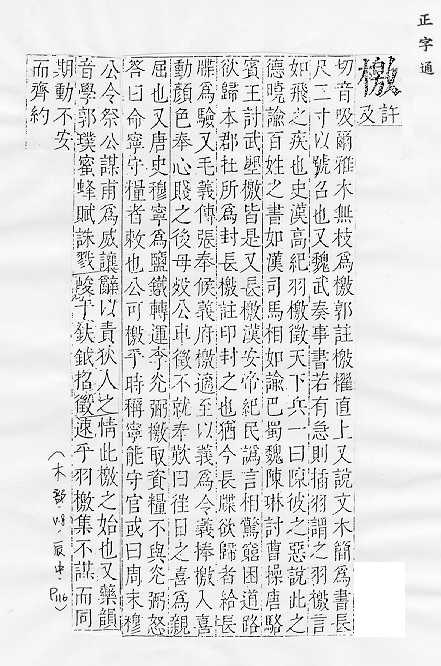 正字通
檄
許
及
切音吸爾雅木無枝爲檄郭註檄櫂直上又說文木簡爲書長
尺二寸以號召也又魏武奏事書若有急則揷羽謂之羽檄言
如飛之疾也史漢高紀羽檄徵天下兵一曰陳彼之惡說此之
德曉諭百姓之書如漢司馬相如諭巴蜀魏陳琳討曹操唐駱
賓王討武曌檄皆是又長檄漢安帝紀民譌言相驚窮困道路
欲歸本郡杜所爲封長檄註印封之也猶今長牒欲歸者給長
牒爲驗又毛義傳張奉候義府檄適至以義爲令義捧檄入喜
動顏色奉心賤之後母歿公車徵不就奉歎曰徃日之喜爲親
屈也又唐史穆寧爲鹽鐵轉運李光弼檄取資糧不與光弼怒
答曰命寧守糧者敕也公可檄乎時稱寧能守官或曰周末穆
公令祭公謀甫爲威讓辭以責狄人之情此檄之始也又藥韻
音學郭璞蜜蜂賦誅戮峻于鈇鉞招徵速乎羽檄集不謀而同
期動不安
而齊約
(木部 辰中 P116)